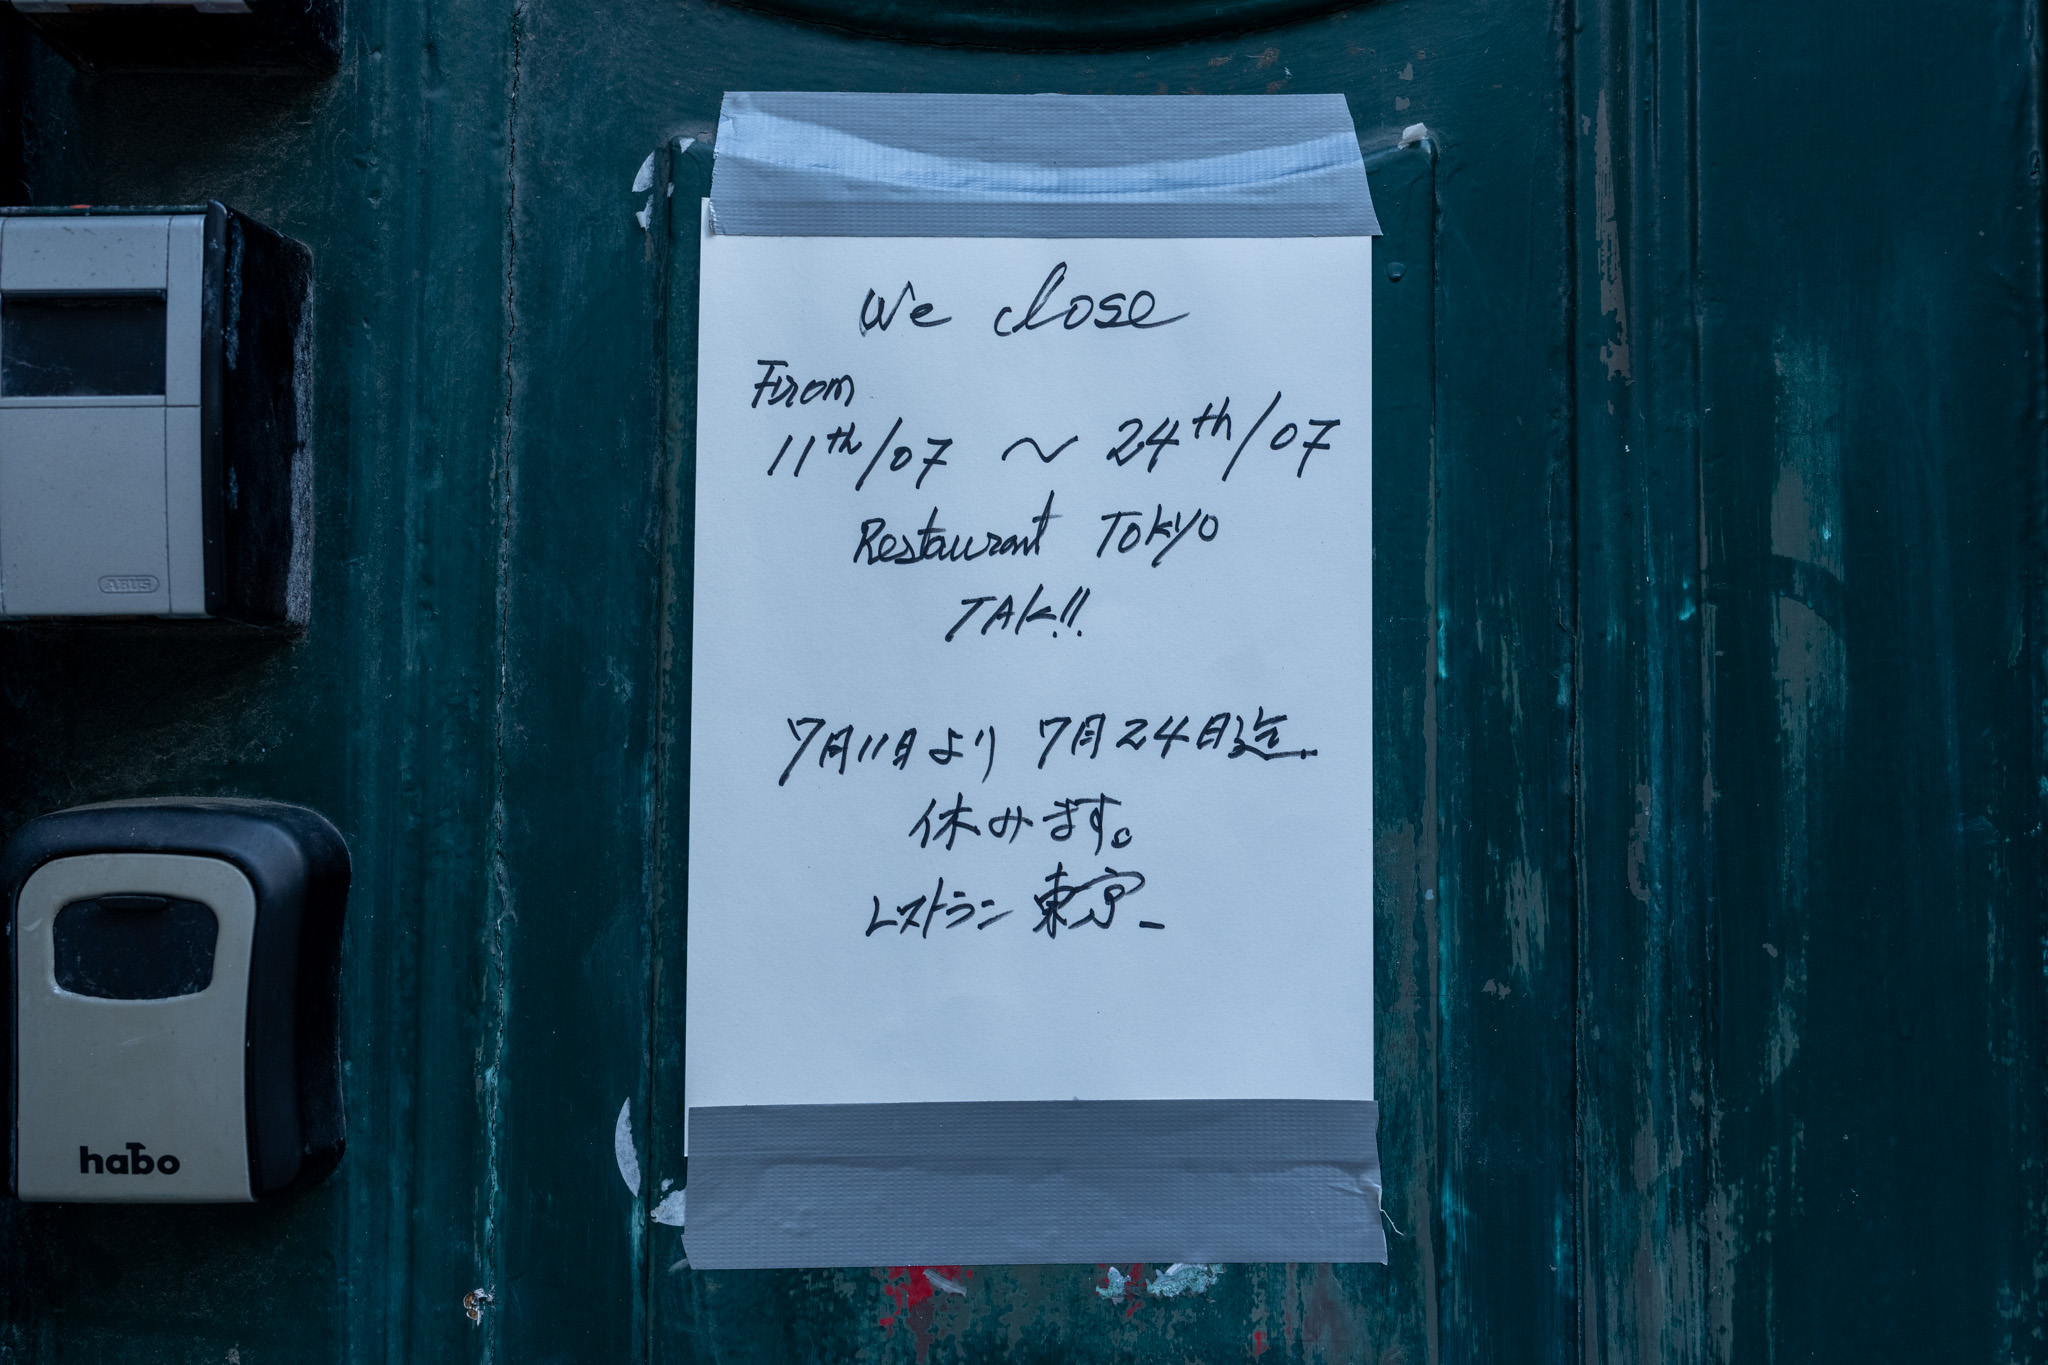 We close
From
11th/07 ～ 24th/07
Restaurant TOKYO
TAK!!
7月11日より 7月24日迄.
休みます。
レストラン 東京_
ABUS
habo